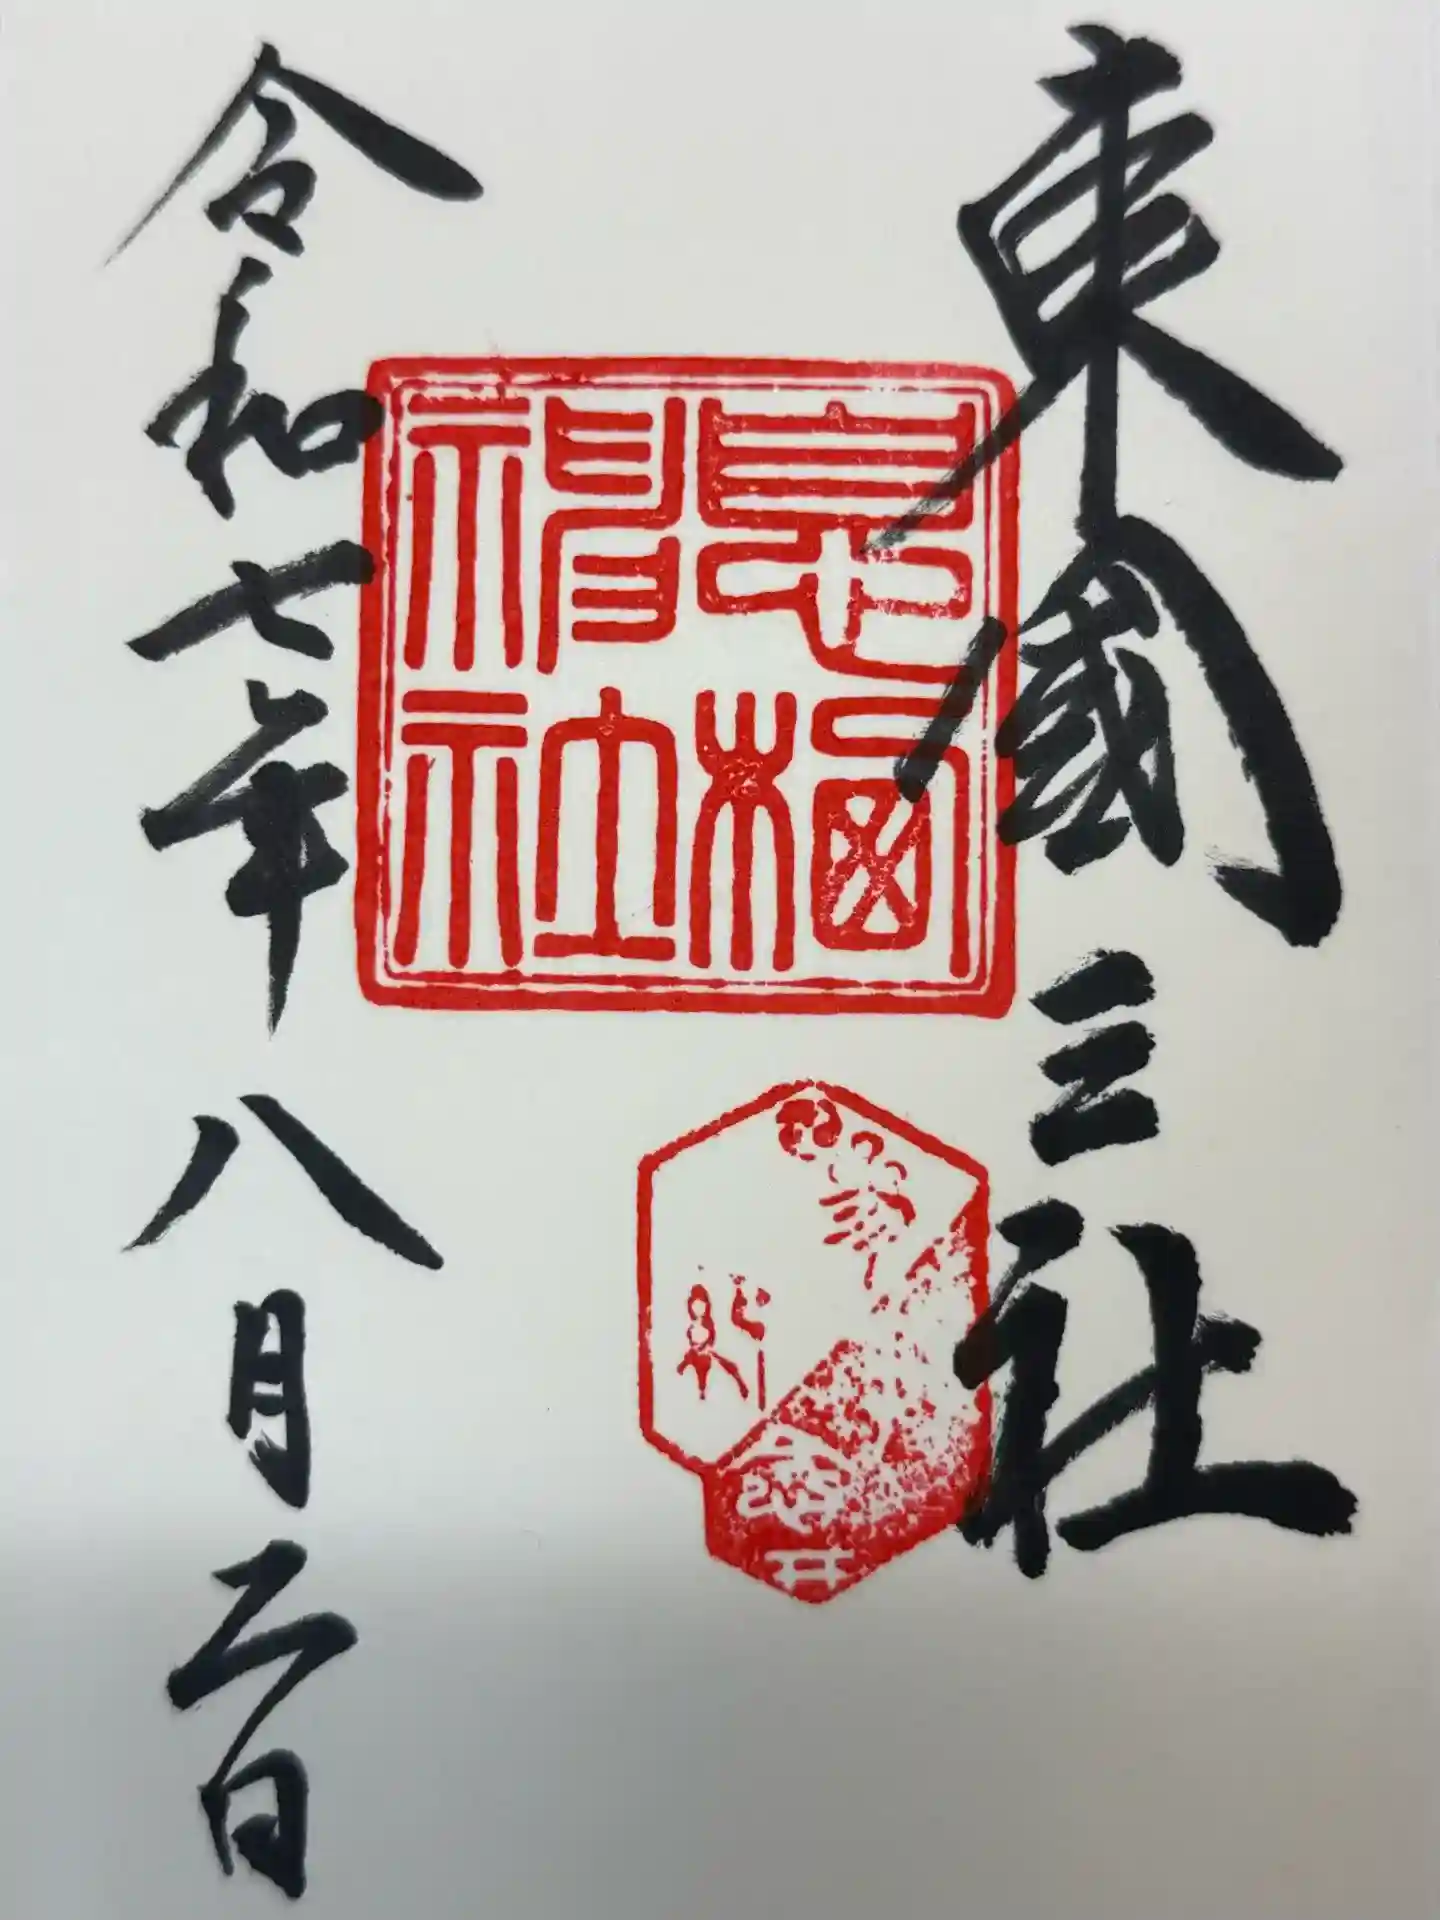 東國三社
息栖
神社
令和七年八月二日